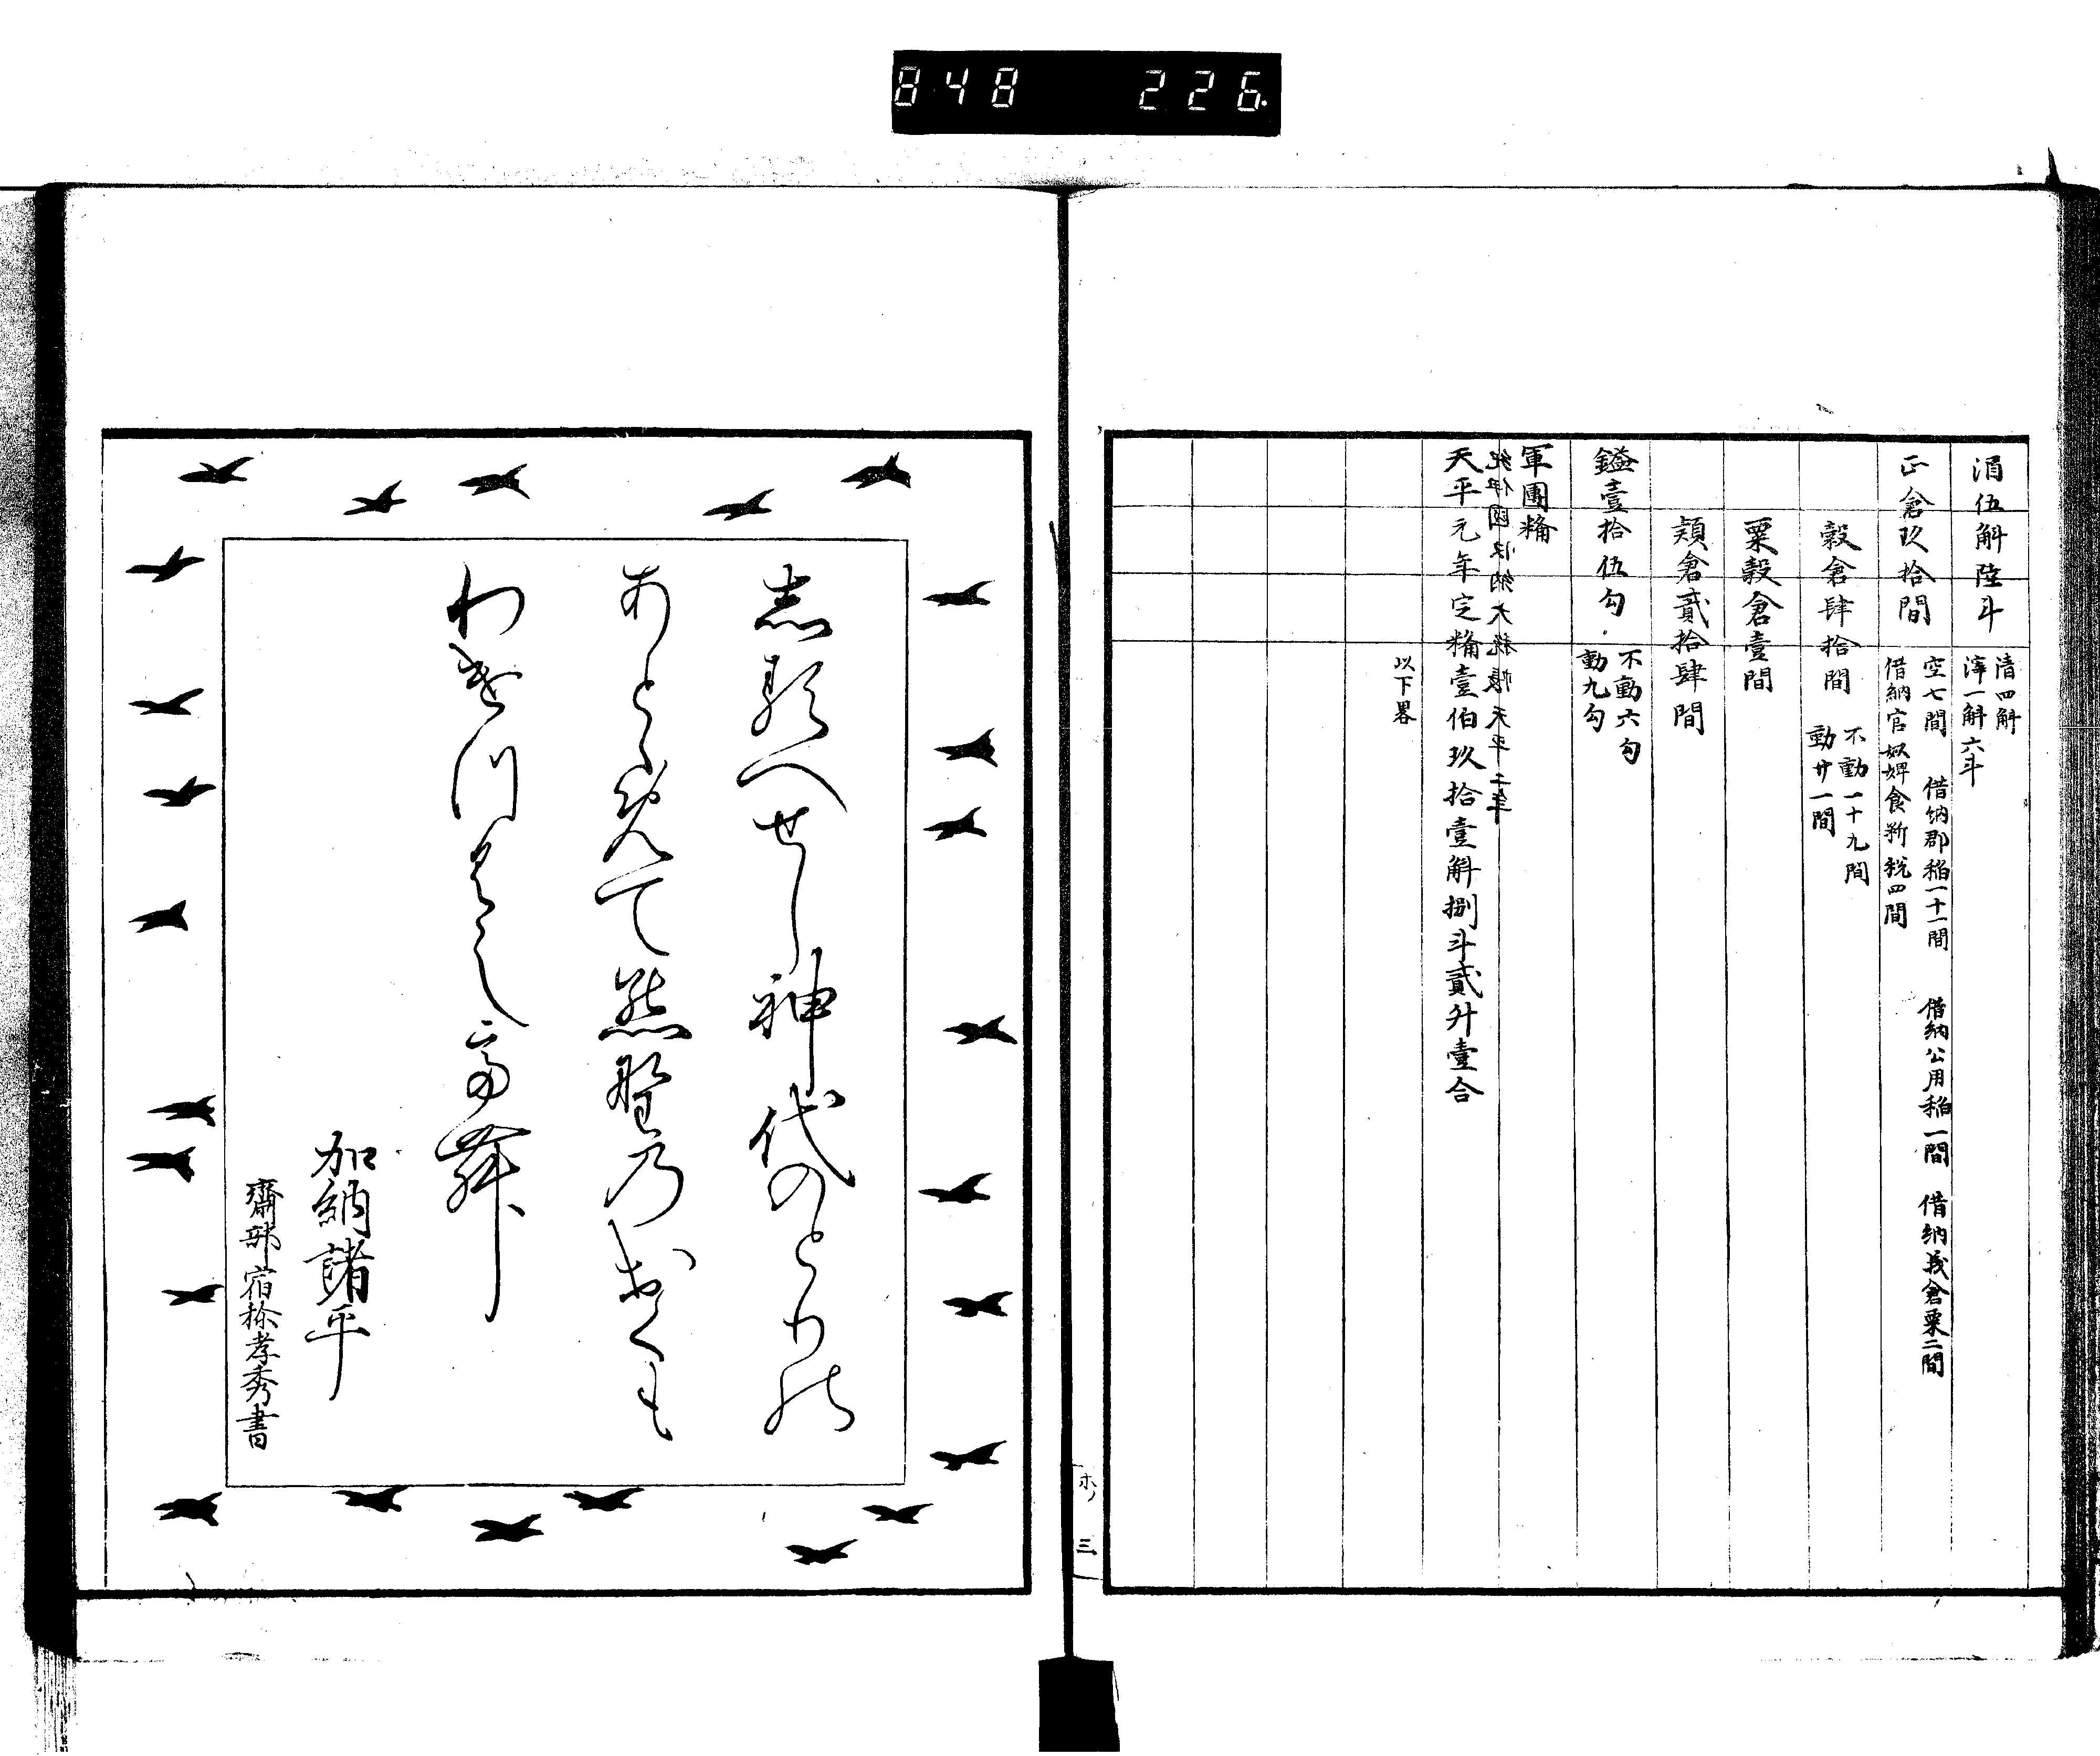 848 226.
涓伍斛陸斗 清四斛
滓一斛六斗
正倉玖拾間 空七間 借納郡稲一十一間 借納公用稲一間 借納義倉粟二間
借納官奴婢食料税四間
穀倉肆拾間 不動一十九間
動廿一間
粟穀倉壹間
頴倉貳拾肆間
鎰壹拾伍勾 不動六勾
動九勾
軍團糒
紀伊國収納大税帳天平二年
天平元年定糒壹伯玖拾壹斛捌斗貳升壹合
以下畧
ホノ 三
志るへせし神代のとりの
あとゝめて熊野乃おくも
加納諸平
齋部宿祢孝秀書